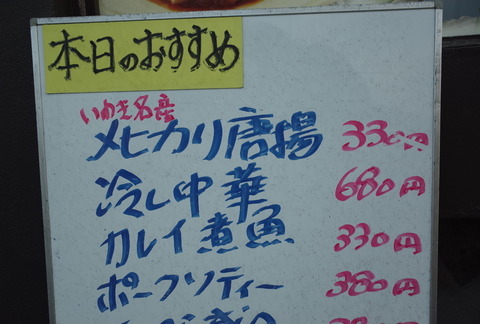 本日のおすすめ
いわき名産
メヒカリ唐揚 330円
冷し中華 680円
カレイ煮魚 330円
ポークソティー 380円